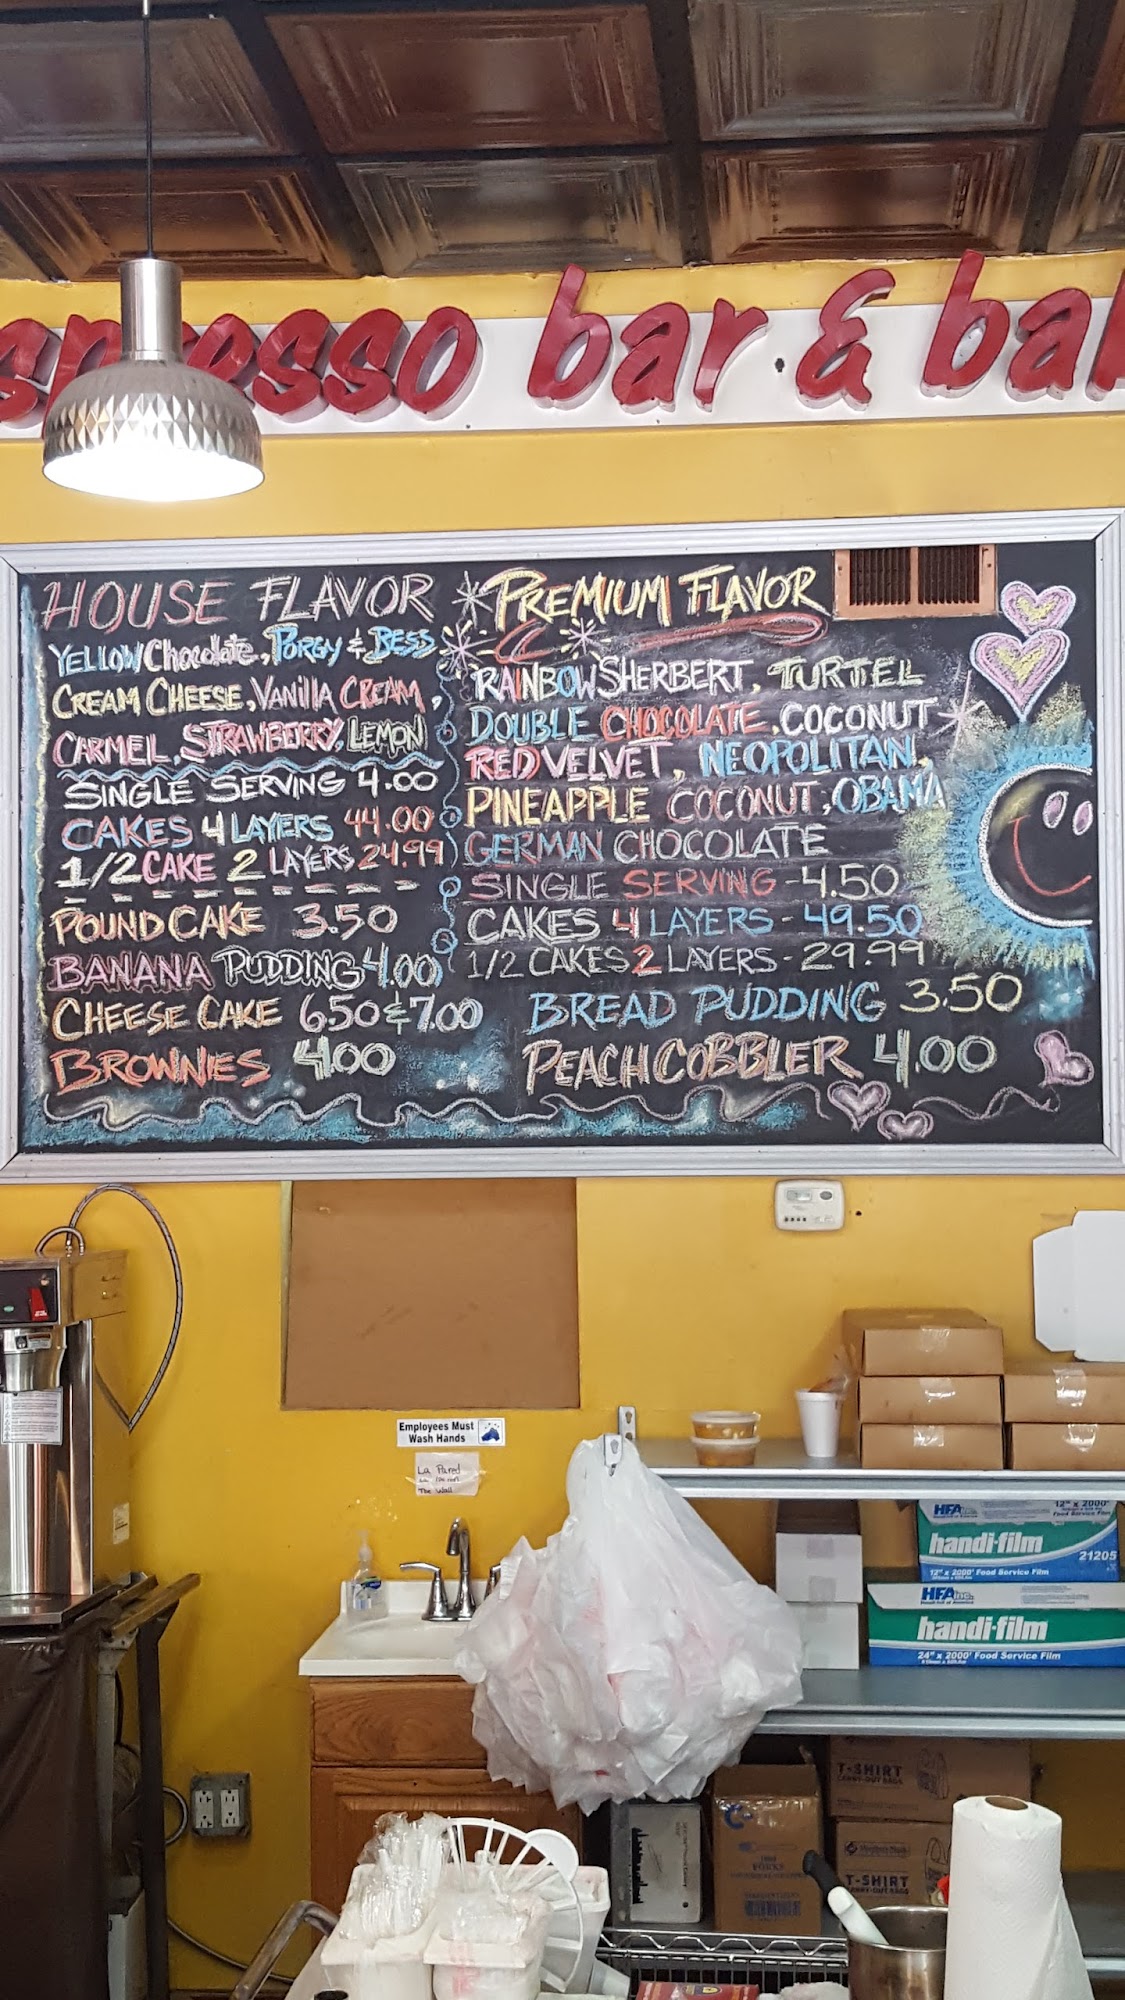 espresso bar & bak
HOUSE FLAVOR
YELLOW Chocolate, PORGY & BESS
CREAM CHEESE, VANillA CREAM,
CARMEL, STRAWBERRY, LEMON
SINGLE SERVING 4.00
CAKES 4 LAYERS 44.00
1/2 CAKE 2 LAYERS 24.99
POUND CAKE 3.50
BANANA PUDDING 4.00
CHEESE CAKE 6.50 & 7.00
BROWNIES 4.00
PREMIUM FLAVOR
RAINBOW SHERBERT, TURTEL
DOUBLE CHOCOLATE, COCONUT
RED VELVET, NEOPOLITAN,
PINEAPPLE COCONUT, OBAMA
GERMAN CHOCOLATE
SINGLE SERVING -4.50
CAKES 4 LAYERS - 49.50
1/2 CAKES 2 LAYERS - 29.99
BREAD PUDDING 3.50
PEACH COBBLER 4.00
Employees Must
Wash Hands
La Pared
The Wall
HFA
12" x 2000'
Food Service Film
handi-film
21205
12" x 2000' Food Service Film
HFA inc.
handi-film
24" x 2000' Food Service Film
T-SHIRT
CARRY-OUT BAGS
T-SHIRT
CARRY-OUT BAGS